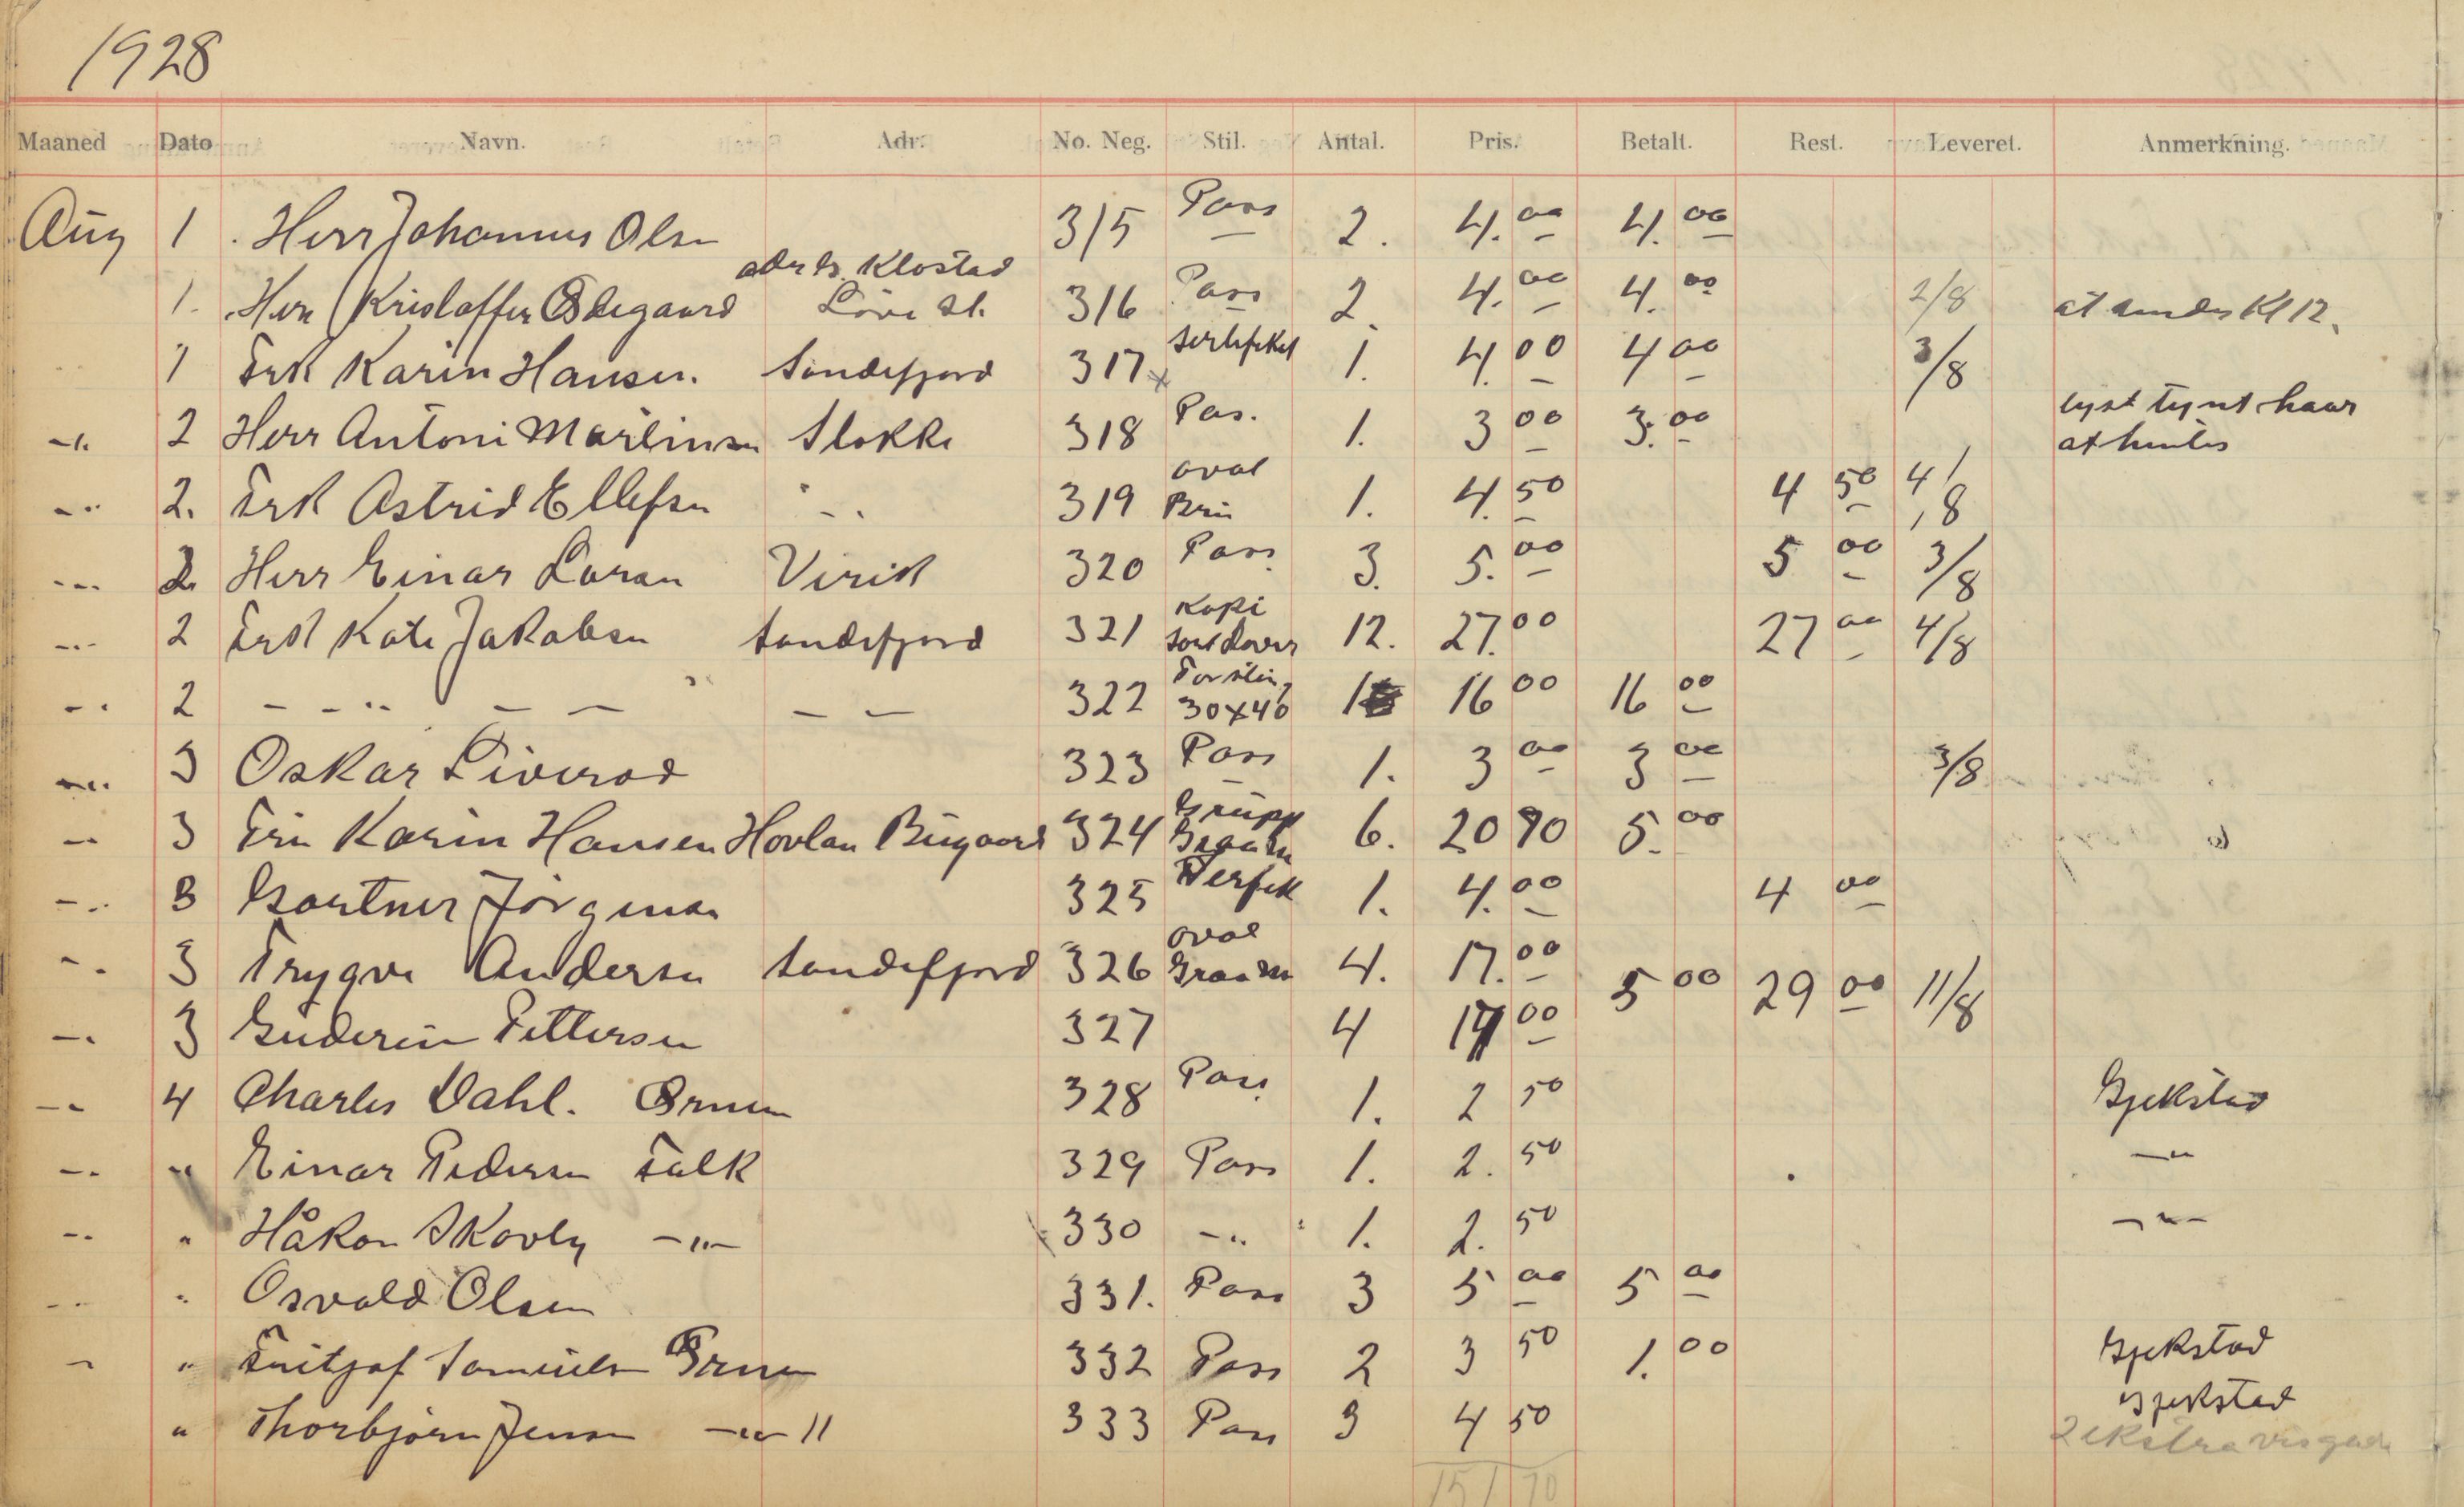 1928
Maaned Dato Navn. Adr. No. Neg. Stil. Antal. Pris. Betalt. Rest. Leveret. Anmerkning.
Aug 1 Herr Johannes Olsn 315 Pass 2. 4.00 4.00
1. Herr Kristoffer Ødegaard adrs. Klostad Löve st. 316 Pass 2. 4.00 4.00 2/8 at sendes Kl 12.
1 Frk Karin Hansen. Sandefjord 317 x Sertefeket 1. 4.00 4 00 3/8
-"- 2 Herr Antoni Martinsen Stokke 318 Pas. 1. 3 00 3.00 lyst tynt haar
2. Frk Astrid Ellefsn -"- 319 oval Bru 1. 4.50 4 50 4/8
-"- 2. Herr Einar Laran Virik 320 Pass. 3. 5.00 5 00 3/8
-"- 2 Frk Kate Jakobsn Sandefjord 321 Kopi 12. 27.00 27 00 4/8
-"- 2 - - " - - - - 322 Forstng 30x40 1 16 00 16 00
-"- 3 Oskar Liverod 323 Pass 1. 3 00 3 00 3/8
-"- 3 Fru Karin Hansen Hovlan Bugaard 324 Grupp 6. 20 90 5.00
-"- 3 Gartner Jörgensn 325 1. 4.00 4 00
-"- 3 Trygve Andersn Sandefjord 326 oval 4. 17.00 5 00 29 00 11/8
-"- 3 Guderun Pettersen 327 4 17 00
-"- 4 Charles Dahl. Ørnen 328 Pass. 1. 2 50 Gjekstad
-"- " Einar Pedersn Falk 329 Pass 1. 2.50 -"-
-"- " Håkon Skovly -"- 330 -"- 1. 2.50 -"-
-"- " Osvald Olsen 331. Pass 3 5 00 5 00
-"- " Fritjof Samuelsn Ørnen 332 Pass 2 3 50 1.00 Gjekstad
" Thorbjørn Jensn -"- 11 333 Pass 3 4 50 Gjekstad
2 ekstra
151 70